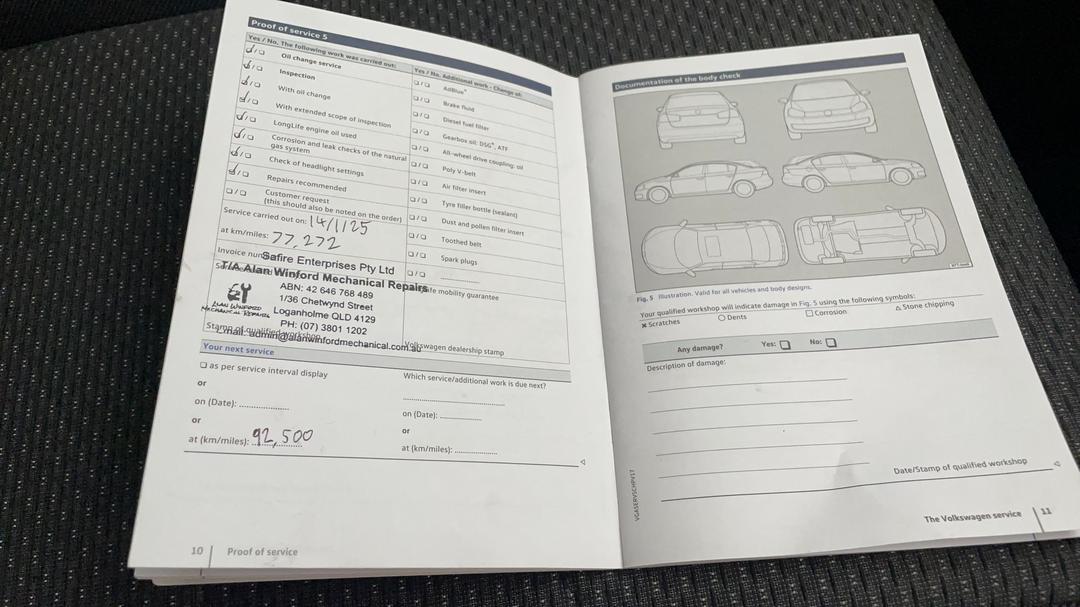 Proof of service 5
Yes / No. The following work was carried out:
Oil change service
Inspection
With oil change
With extended scope of inspection
LongLife engine oil used
Corrosion and leak checks of the natural
gas system
Check of headlight settings
Repairs recommended
Customer request
(this should also be noted on the order)
Service carried out on: 14/1/25
at km/miles: 77,272
Invoice
Safire Enterprises Pty Ltd
T/A Alan Winford Mechanical Repairs
ABN: 42 646 768 489
1/36 Chetwynd Street
Loganholme QLD 4129
PH: (07) 3801 1202
Email: admin@alanwinfordmechanical.com.au
ALAN WINFORD
MECHANICAL REPAIRS
Stamp of qualified workshop
Yes / No. Additional work - Change of:
AdBlue®
Brake fluid
Diesel fuel filter
Gearbox oil: DSG®, ATF
All-wheel drive coupling: oil
Poly V-belt
Air filter insert
Tyre filler bottle (sealant)
Dust and pollen filter insert
Toothed belt
Spark plugs
mobility guarantee
Volkswagen dealership stamp
Your next service
as per service interval display
or
on (Date):
or
at (km/miles): 92,500
Which service/additional work is due next?
on (Date):
or
at (km/miles):
10 | Proof of service
Documentation of the body check
Fig. 5 Illustration. Valid for all vehicles and body designs.
Your qualified workshop will indicate damage in Fig. 5 using the following symbols:
× Scratches ○ Dents □ Corrosion △ Stone chipping
Any damage? Yes: □ No: □
Description of damage:
Date/Stamp of qualified workshop
VGASERVSCHPV17
The Volkswagen service | 11